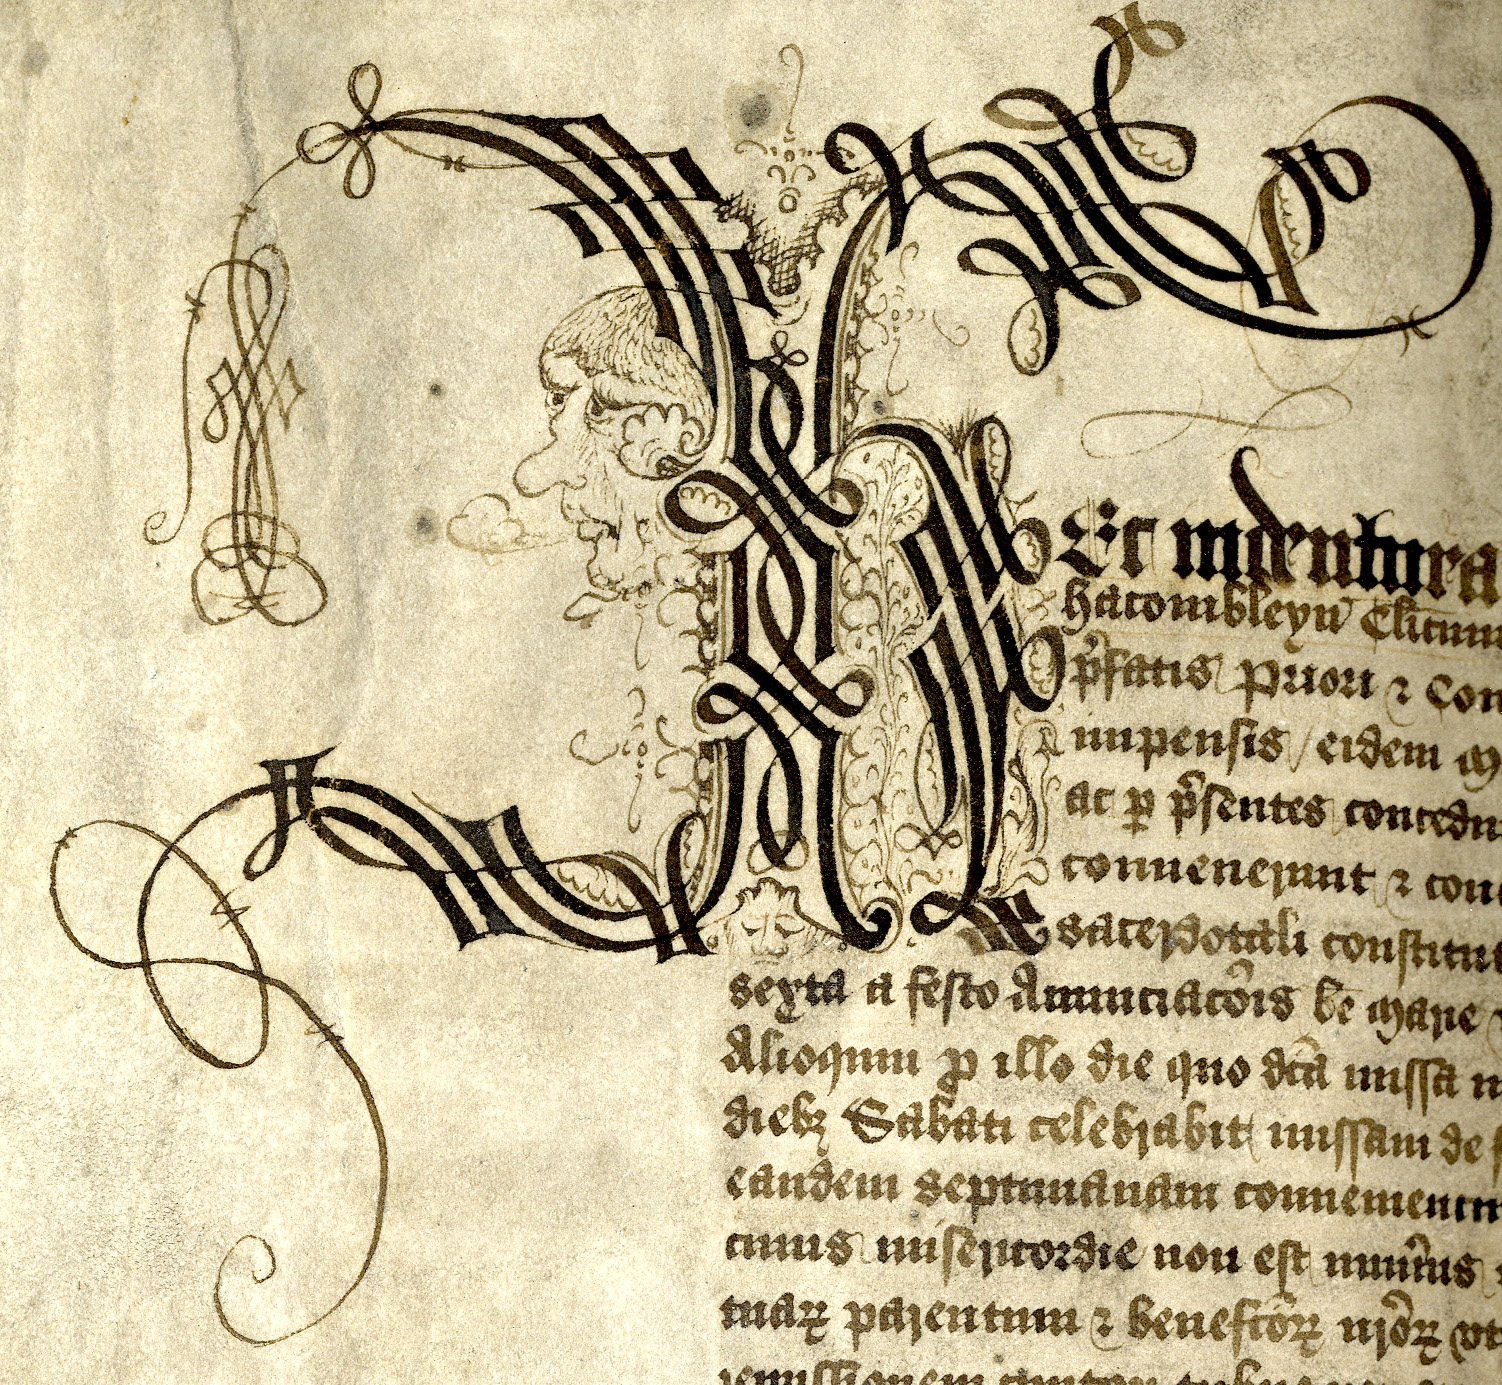 Hec indentura
hacombleyn Clicum
p̃fatis Priori ⁊ Con
impensis / eidem M
ac ꝑ p̃sentes concedu
conuenerunt ⁊ con
sacerdotali constitut
sexta a festo Annunciacõis bẽ Marie
Alioquin ꝓ illo die quo dc̃a missa
dieb⁊ Sabati celebrabit missam de
eandem septimanam conuenient
cuius misericordie non est num̃us
tuaꝝ parentum ⁊ benefc̃oꝝ nr̃oꝝ